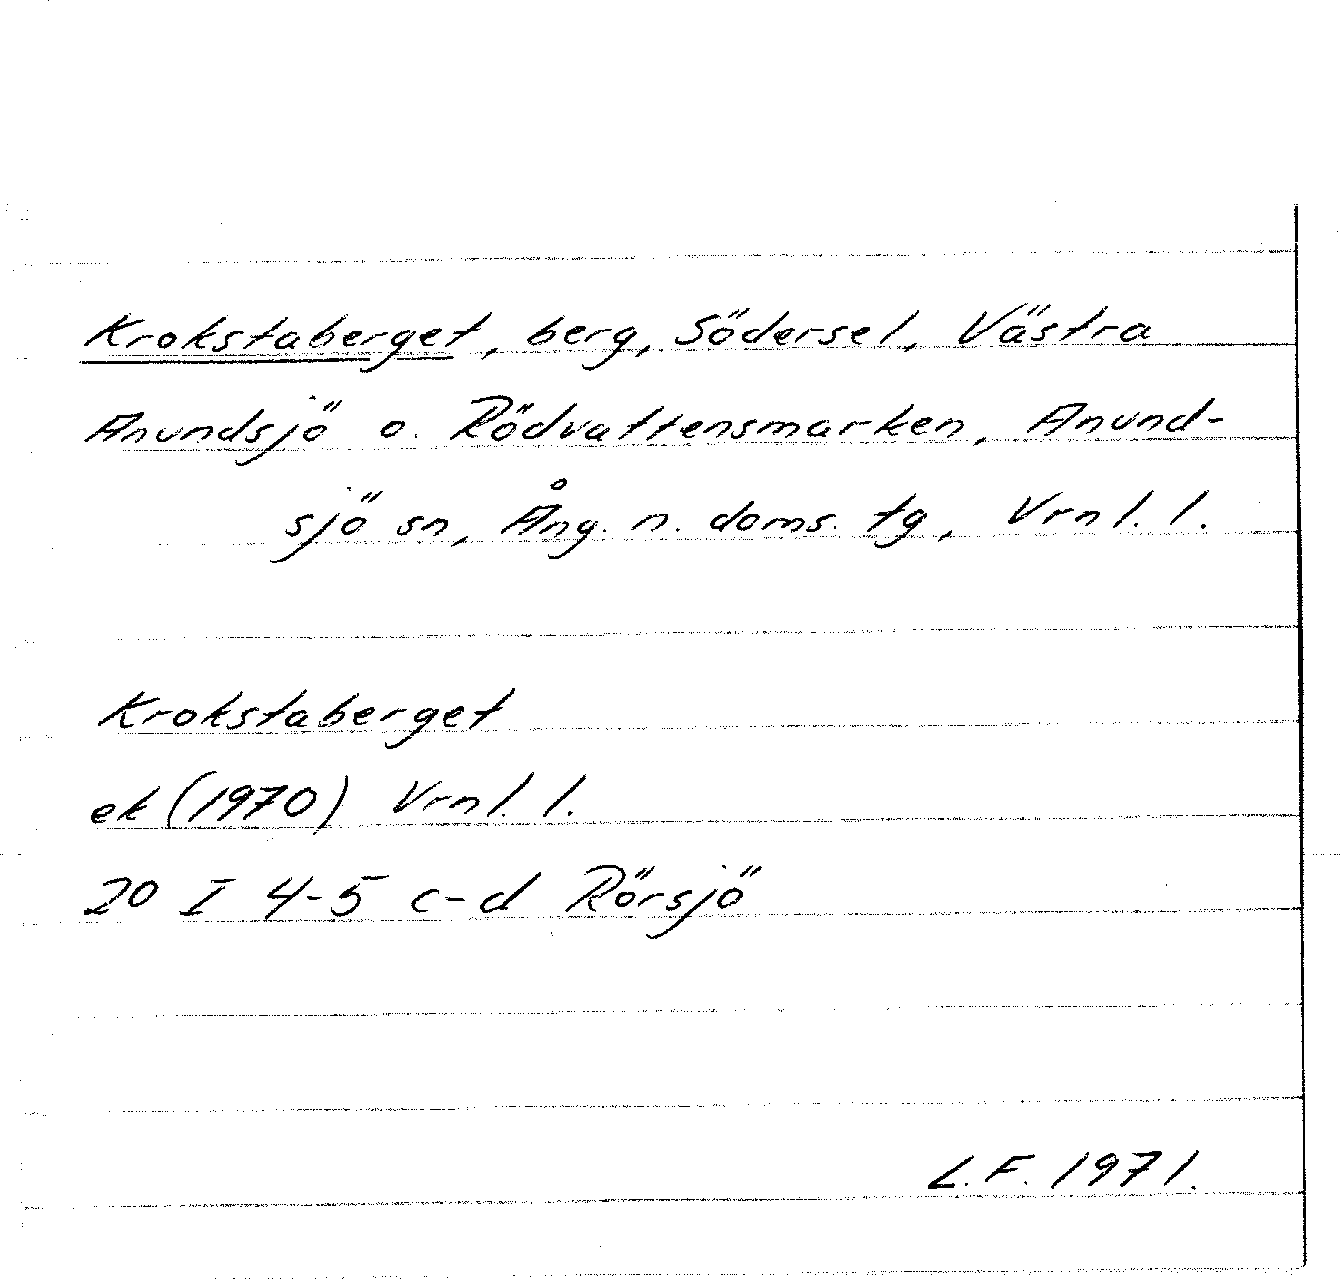 Krokstaberget, berg, Södersel, Västra
Anundsjö o. Rödvattensmarken, Anund-
sjö sn, Ång. n. doms. tg, Vrnl. l.
Krokstaberget
ek (1970) Vrnl. l.
20 I 4-5 c-d Rörsjö
L.F. 1971.